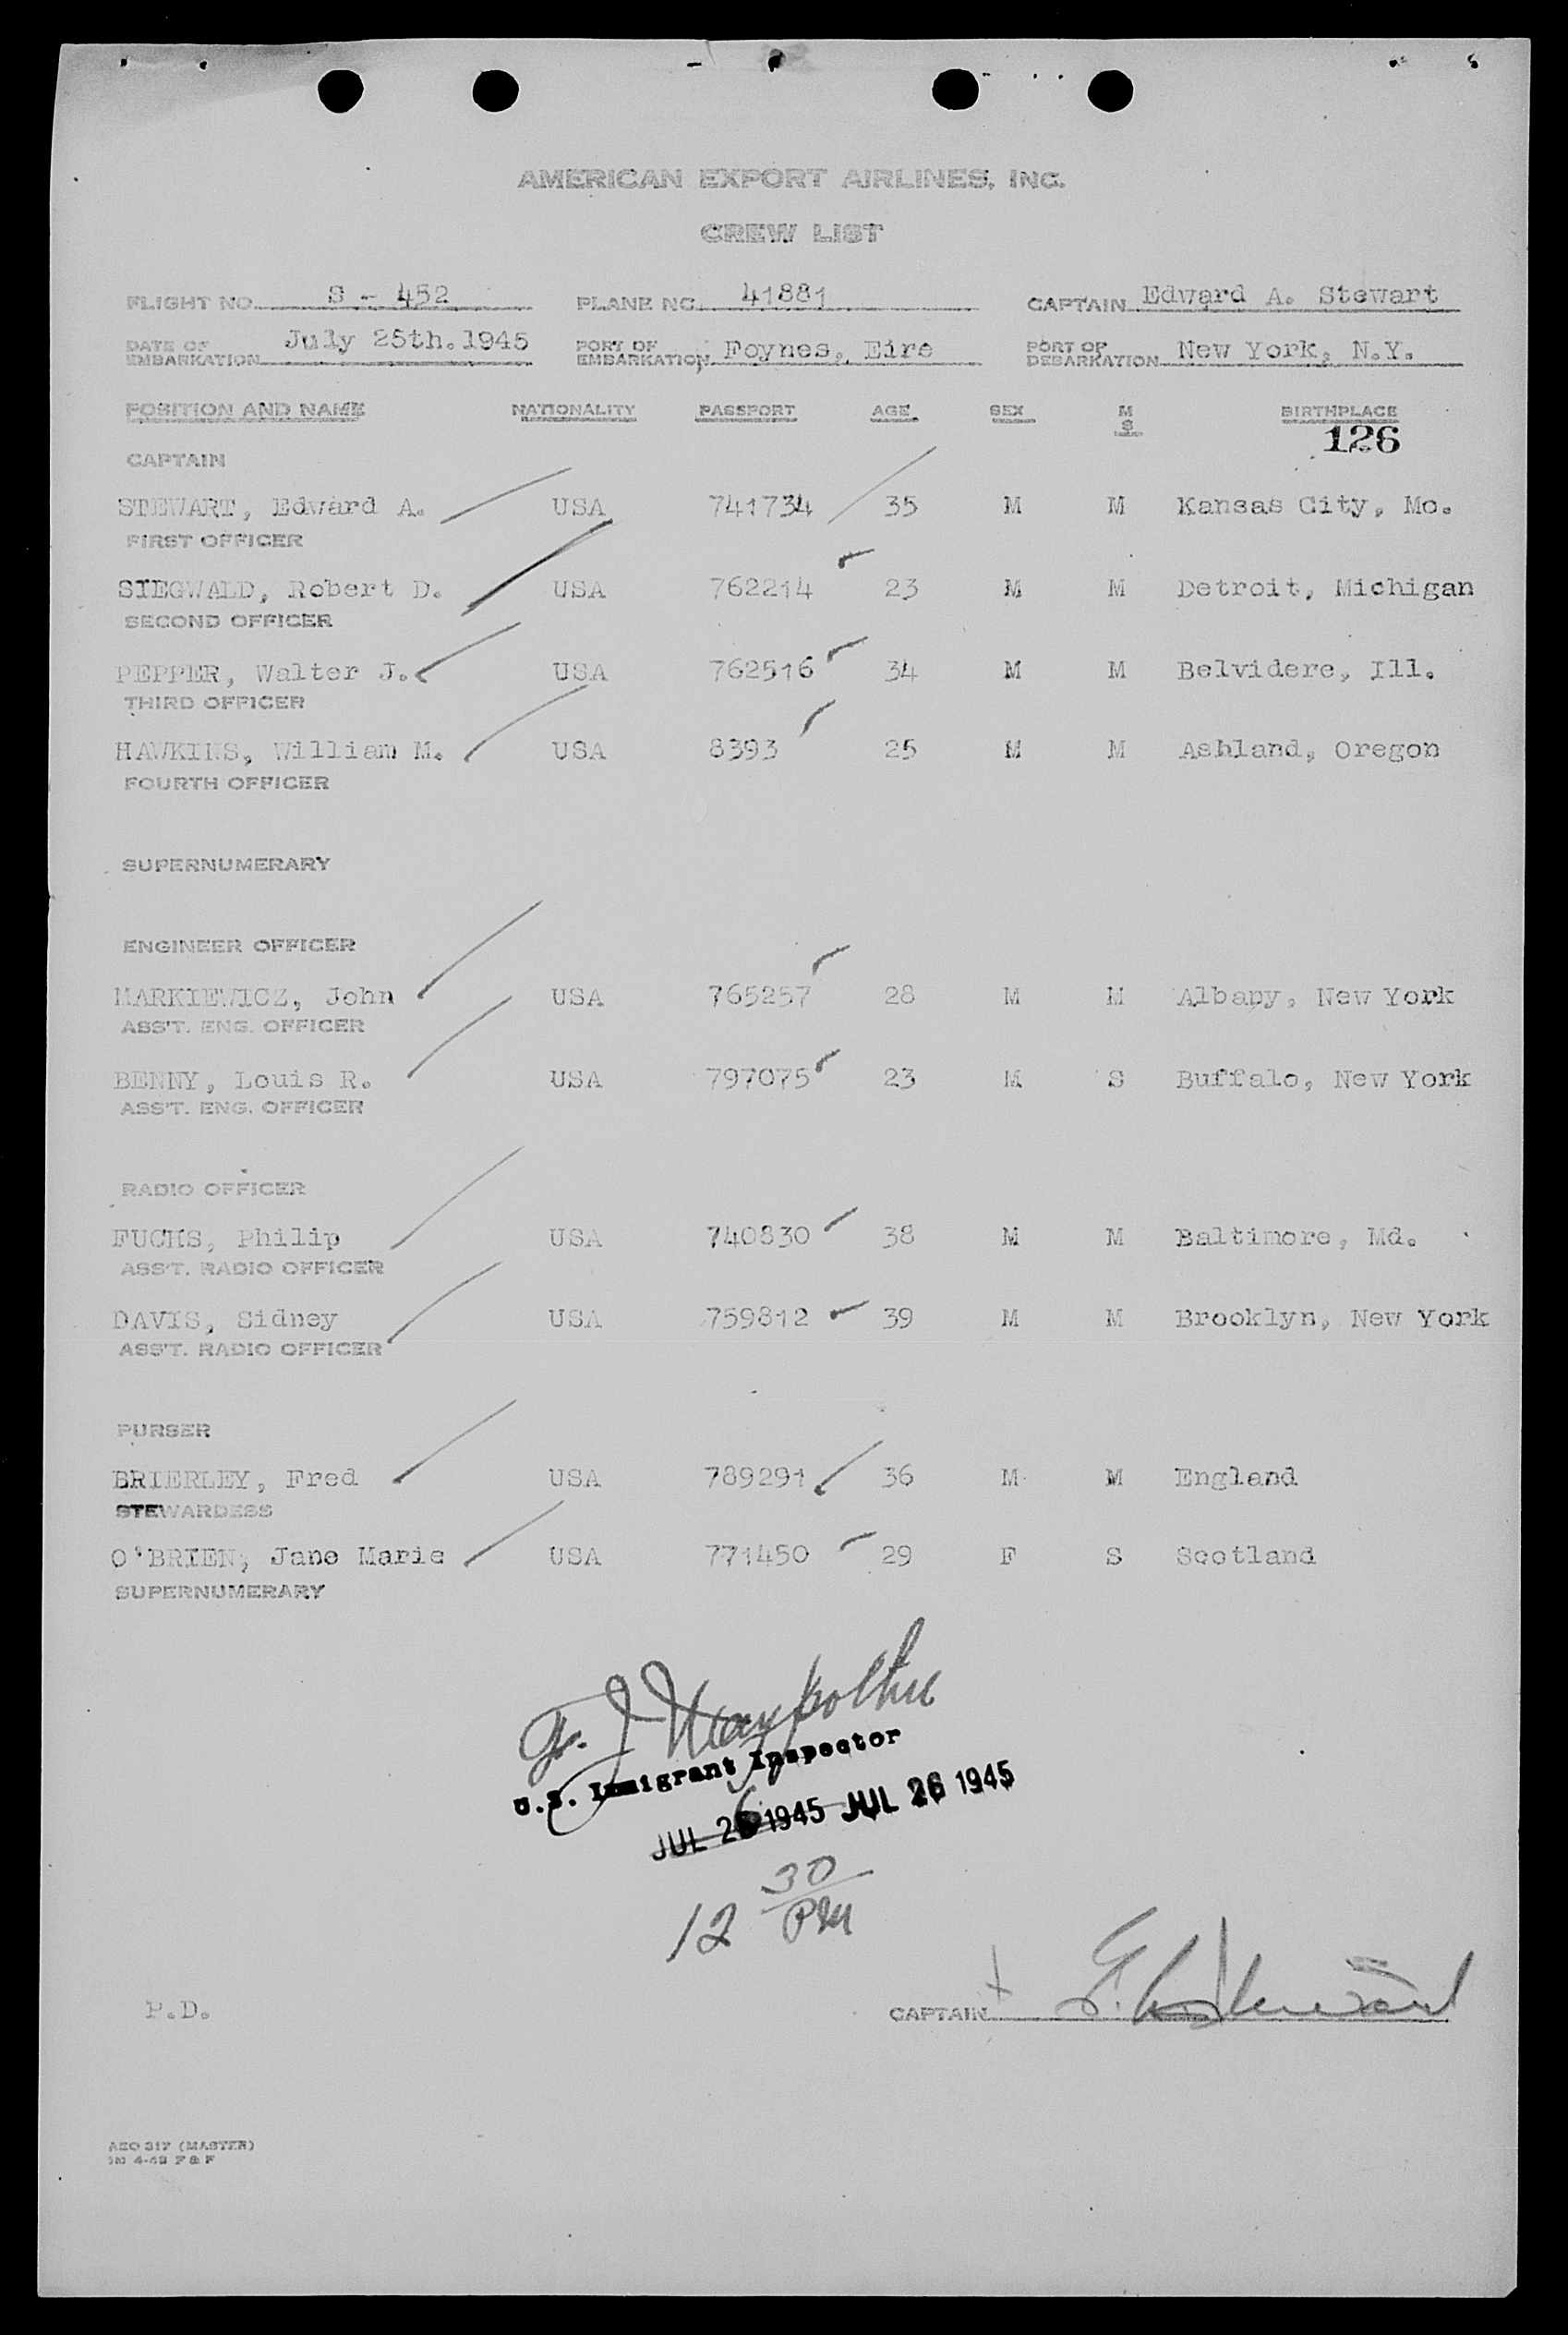 AMERICAN EXPORT AIRLINES, INC.
CREW LIST
FLIGHT NO. S - 452 PLANE NO. 41881 CAPTAIN Edward A. Stewart
DATE OF EMBARKATION July 25th.1945 PORT OF EMBARKATION Foynes, Eire PORT OF DEBARKATION New York, N.Y.
POSITION AND NAME NATIONALITY PASSPORT AGE SEX M S BIRTHPLACE
126
CAPTAIN
STEWART, Edward A. USA 741734 35 M M Kansas City, Mo.
FIRST OFFICER
SIEGWALD, Robert D. USA 762214 23 M M Detroit, Michigan
SECOND OFFICER
PEPPER, Walter J. USA 762516 34 M M Belvidere, Ill.
THIRD OFFICER
HAWKINS, William M. USA 8393 25 M M Ashland, Oregon
FOURTH OFFICER
SUPERNUMERARY
ENGINEER OFFICER
MARKIEWICZ, John USA 765257 28 M M Albany, New York
ASS'T. ENG. OFFICER
BENNY, Louis R. USA 797075 23 M S Buffalo, New York
ASS'T. ENG. OFFICER
RADIO OFFICER
FUCHS, Philip USA 740830 38 M M Baltimore, Md.
ASS'T. RADIO OFFICER
DAVIS, Sidney USA 759812 39 M M Brooklyn, New York
ASS'T. RADIO OFFICER
PURSER
BRIERLEY, Fred USA 789291 36 M M England
STEWARDESS
O'BRIEN, Jane Marie USA 771450 29 F S Scotland
SUPERNUMERARY
U.S. Immigrant Inspector
JUL 26 1945 JUL 26 1945
12 30 PM
P.D.
CAPTAIN E. A. Stewart
(MASTER)
F & F